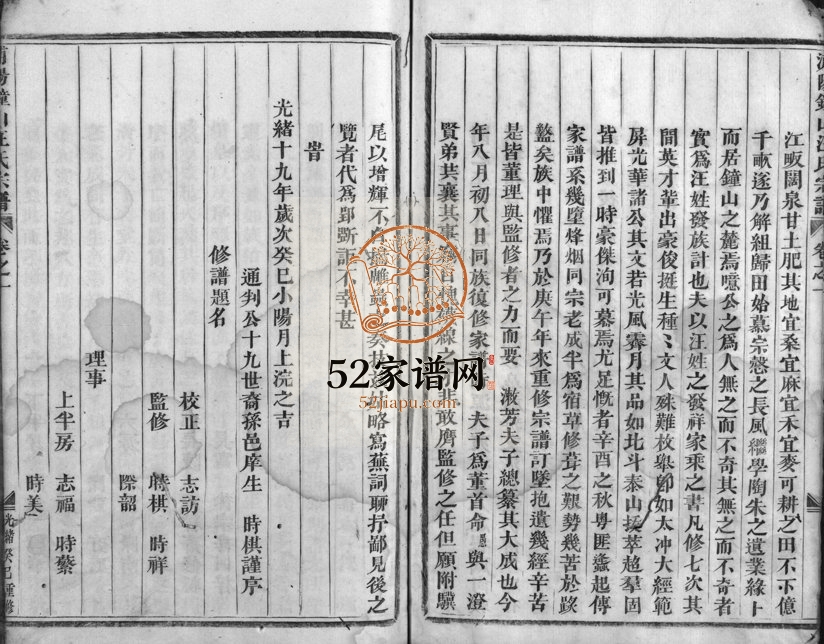 江畈闊泉甘土肥其地宜桑宜麻宜禾宜麥可耕之田不下億
千畝遂乃解組歸田始慕宗慤之長風繼學陶朱之遺業緣卜
而居鐘山之麓焉噫公之爲人無之而不奇其無之而不奇者
實爲汪姓發族計也夫以汪姓之發祥家乘之書凡修七次其
間英才輩出豪俊挺生種種文人殊難枚舉卽如太冲大經範
屏光華諸公其文若光風霽月其品如北斗泰山拔萃超羣固
皆推到一時豪傑洵可慕焉尤足慨者辛酉之秋粤匪蠭起傳
家譜系幾墮烽烟同宗老成半爲宿草修葺之艱勢幾苦於跋
盭矣族中懼焉乃於庚午年來重修宗譜訂墜抱遺幾經辛苦
是皆董理與監修者之力而要 溆芳夫子總纂其大成也今
年八月初八日同族復修家譜 夫子爲董首命愚與一澄
賢弟共襄其事 敢膺監修之任但願附驥
尾以增輝不 略寫蕪詞聊抒鄙見後之
覽者代爲郢斲 不幸甚
旹
光緒十九年歲次癸巳小陽月上浣之吉
通判公十九世裔孫邑庠生 時棋謹序
修譜題名
校正 志訪
監修 時棋 時祥
際韶
理事
上半房 志福 時蘩
時美
光緒癸巳重修
鐘山汪氏宗譜 卷之一
52家谱网
52jiapu.com